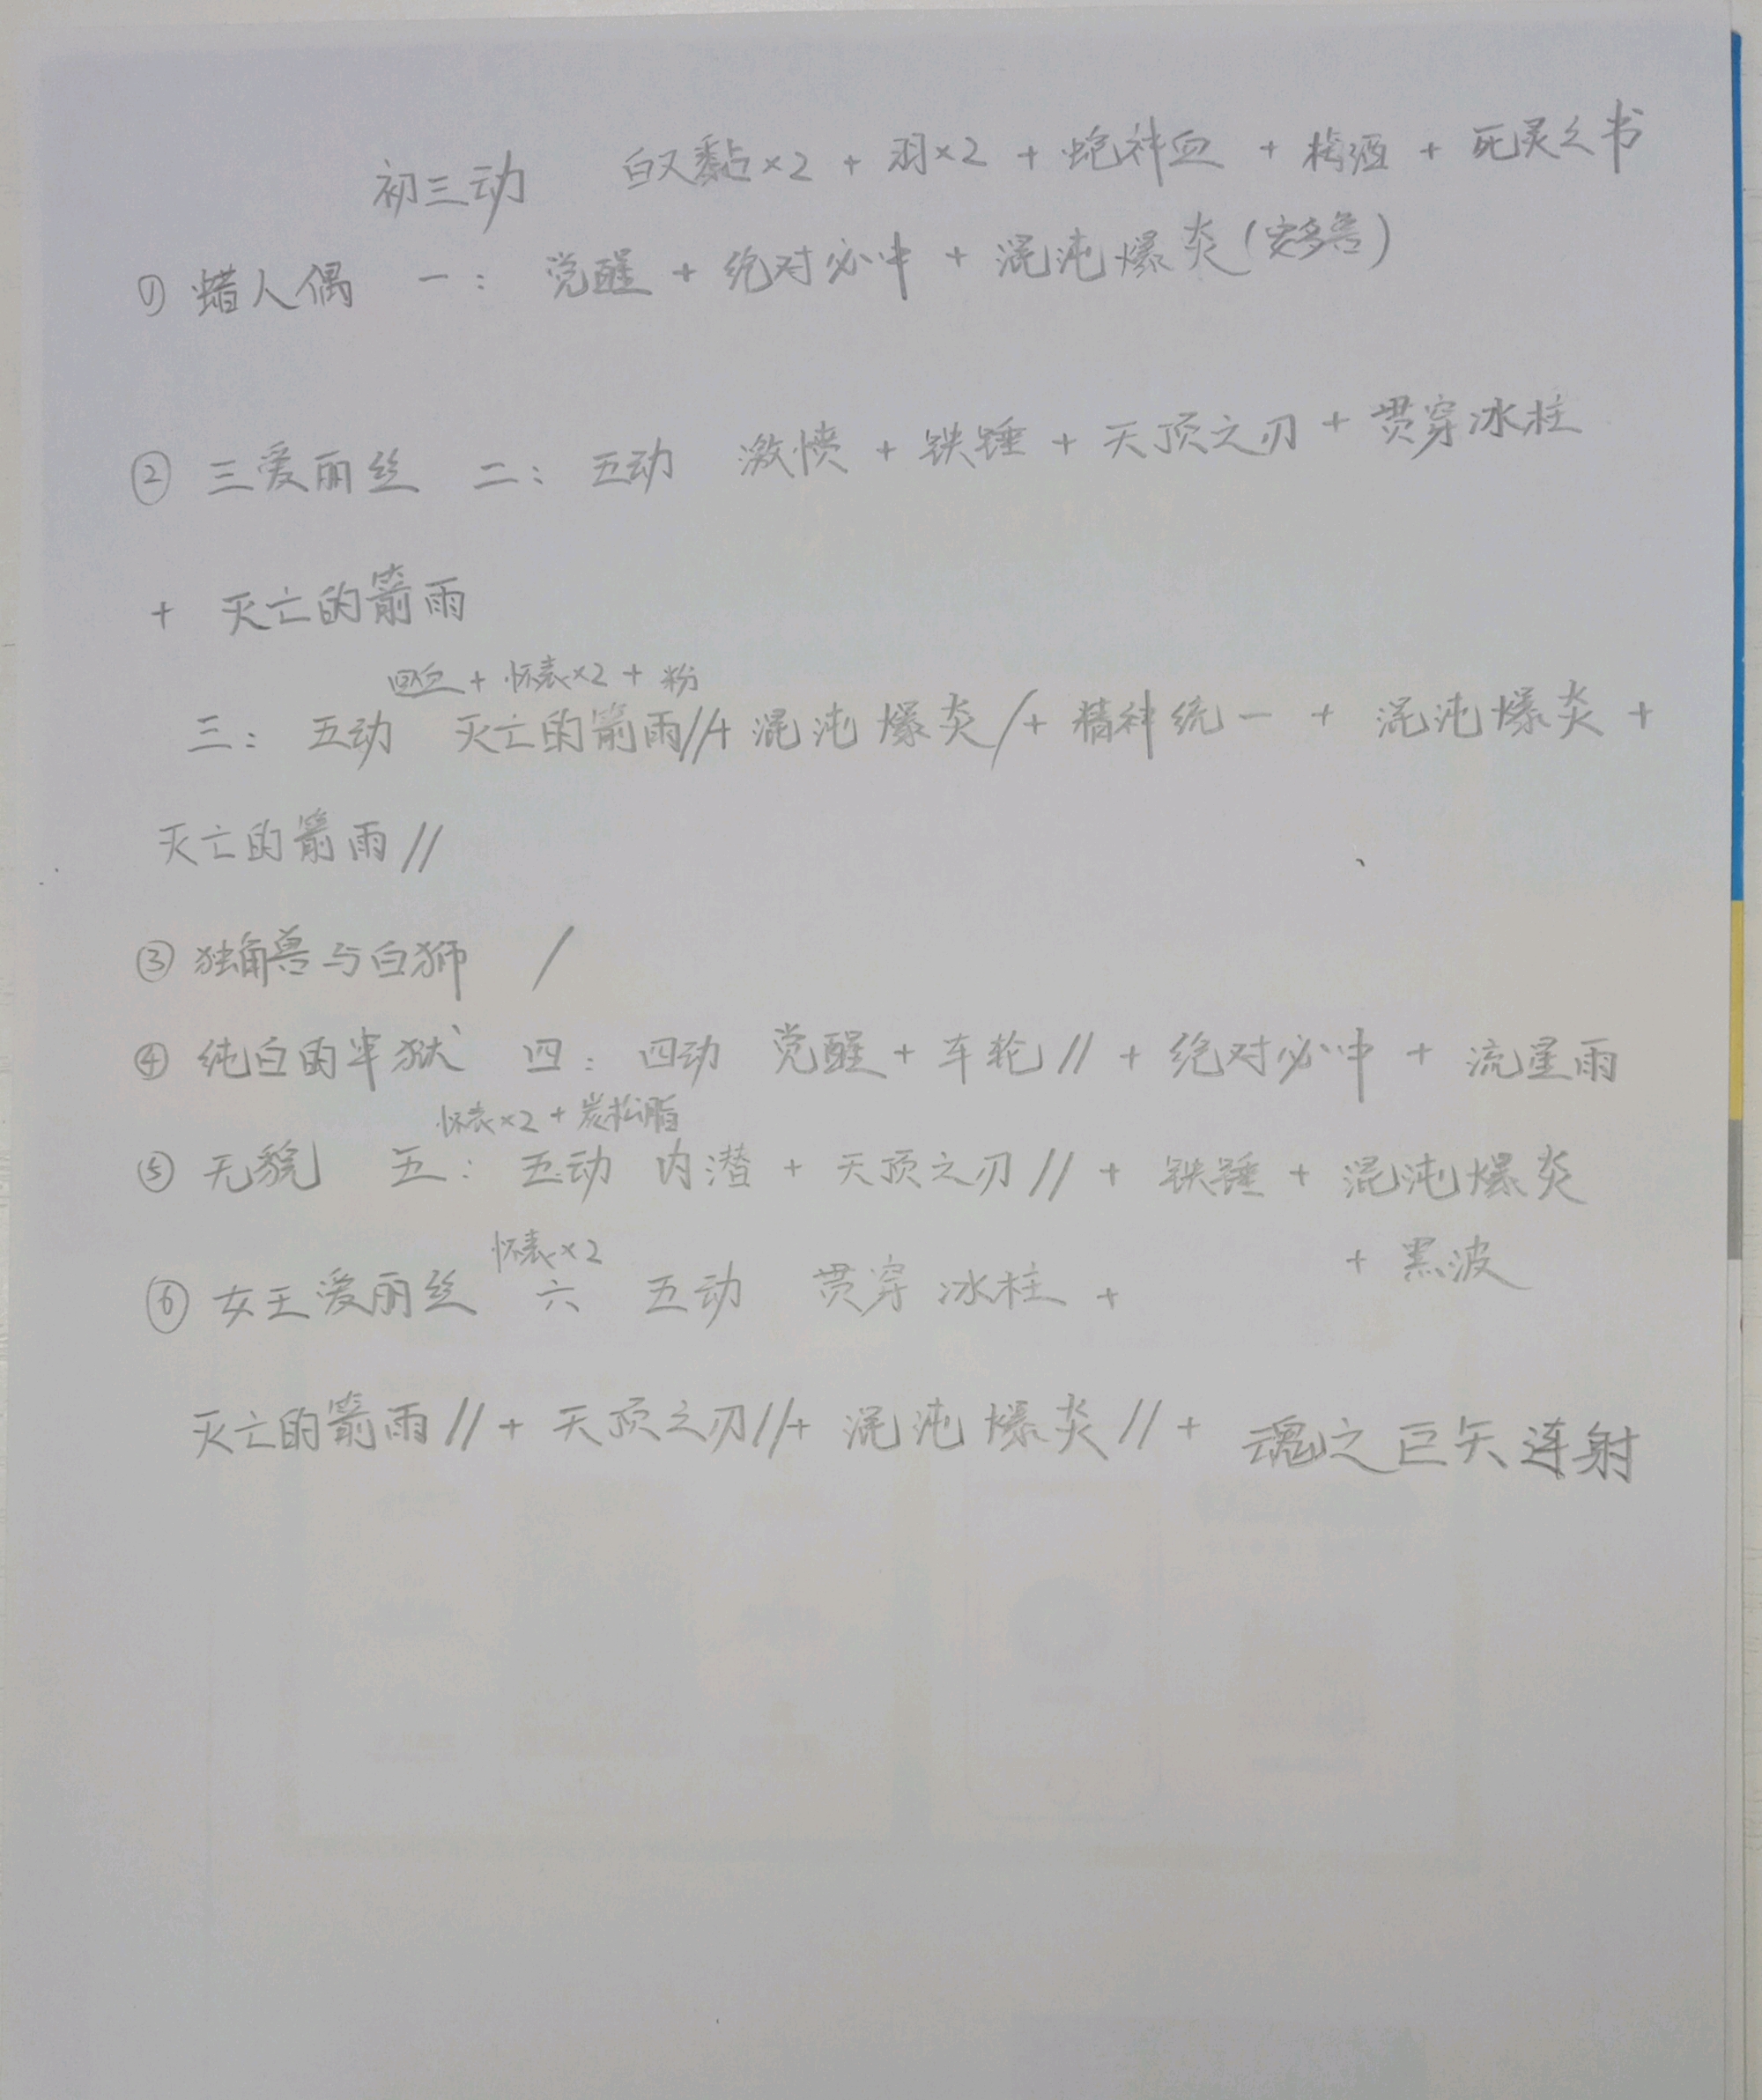 初三动 白又黏×2 + 羽×2 + 蛇神血 + 酒 + 死灵之书
① 蜡人偶 一： 觉醒 + 绝对必中 + 混沌爆炎(安多普)
② 三爱丽丝 二： 五动 激愤 + 铁锤 + 天顶之刃 + 贯穿冰柱
+ 灭亡的箭雨
回血 + 怀表×2 + 粉
三： 五动 灭亡的箭雨//+ 混沌爆炎/+ 精神统一 + 混沌爆炎 +
灭亡的箭雨//
③ 独角兽与白狮 /
④ 纯白的牢狱 四： 四动 觉醒 + 车轮// + 绝对必中 + 流星雨
怀表×2 + 炭松脂
⑤ 无貌 五： 五动 内潜 + 天顶之刃// + 铁锤 + 混沌爆炎
+ 黑波
怀表×2
⑥ 女王爱丽丝 六 五动 贯穿冰柱 +
灭亡的箭雨// + 天顶之刃//+ 混沌爆炎// + 魂之巨矢连射